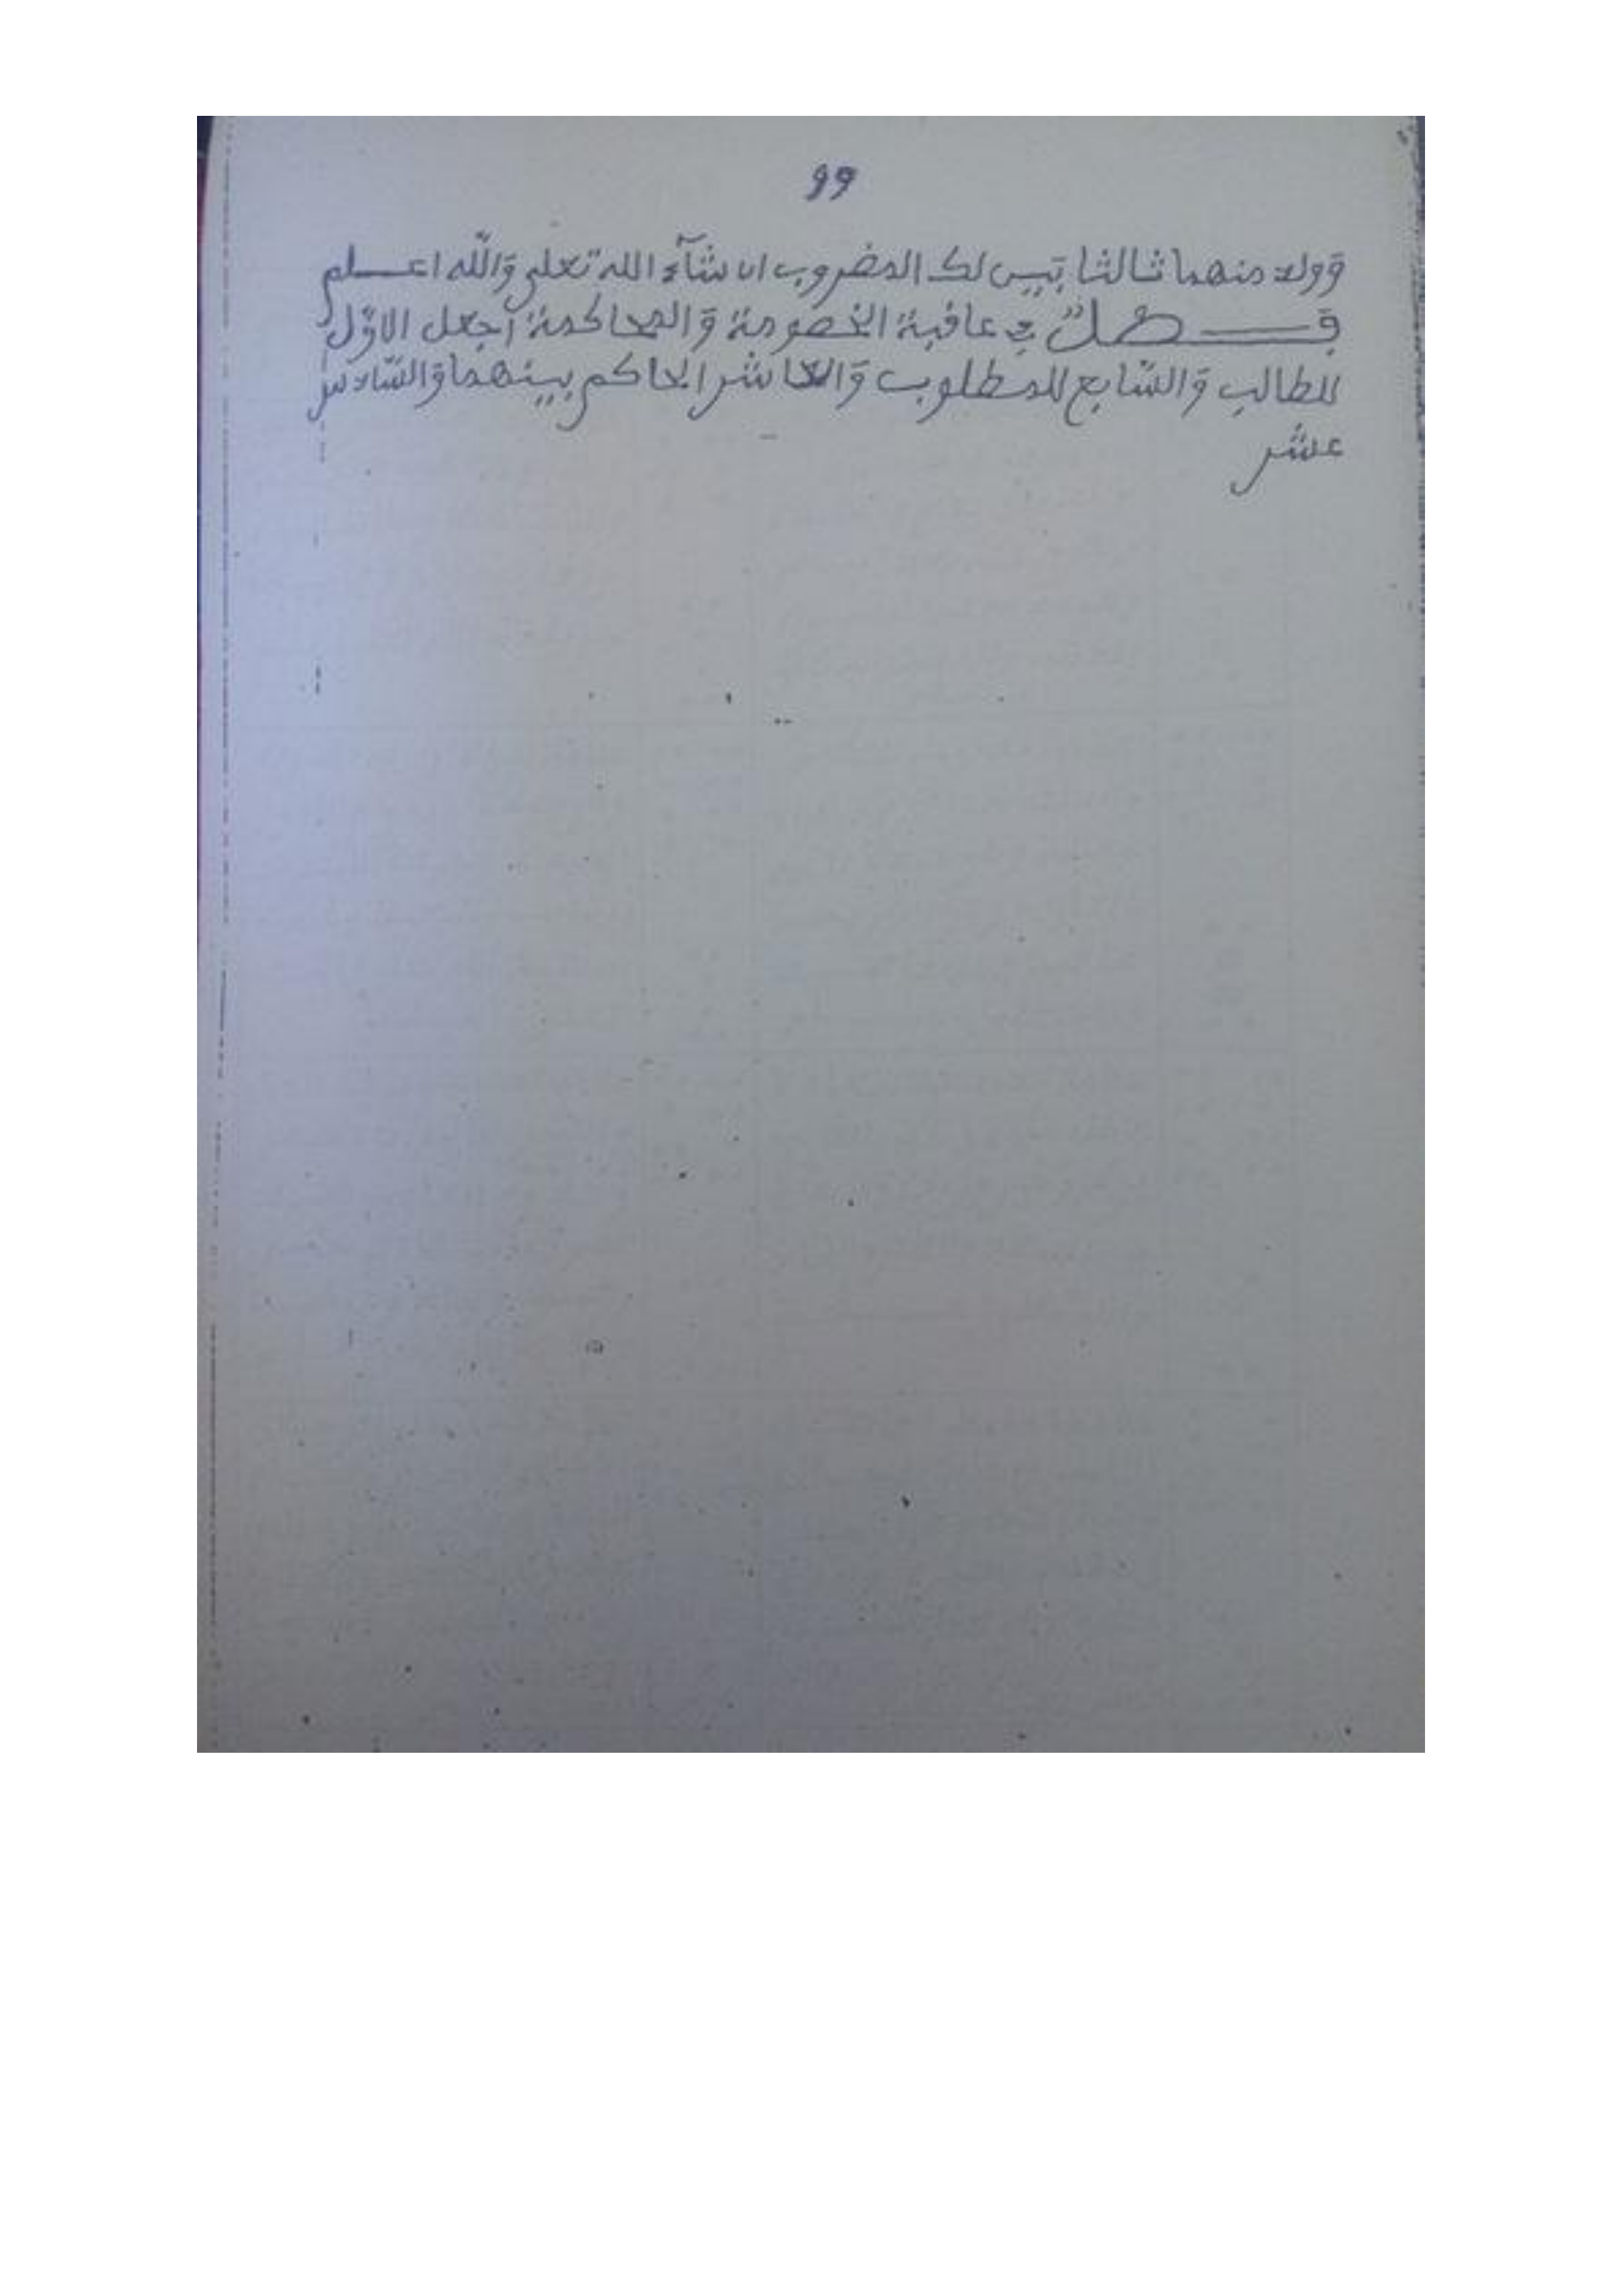 99
وولد منهما ثالثا تبين لك المضروب ان شآء الله تعلى وَالله اعلم
فصلٌ في عاقبة الخصومة وَالمحاكمة اجعل الاوّل
للطالب وَالسّابع للمطلوب وَالعاشر الحاكم بينهما وَالسّادس
عشر